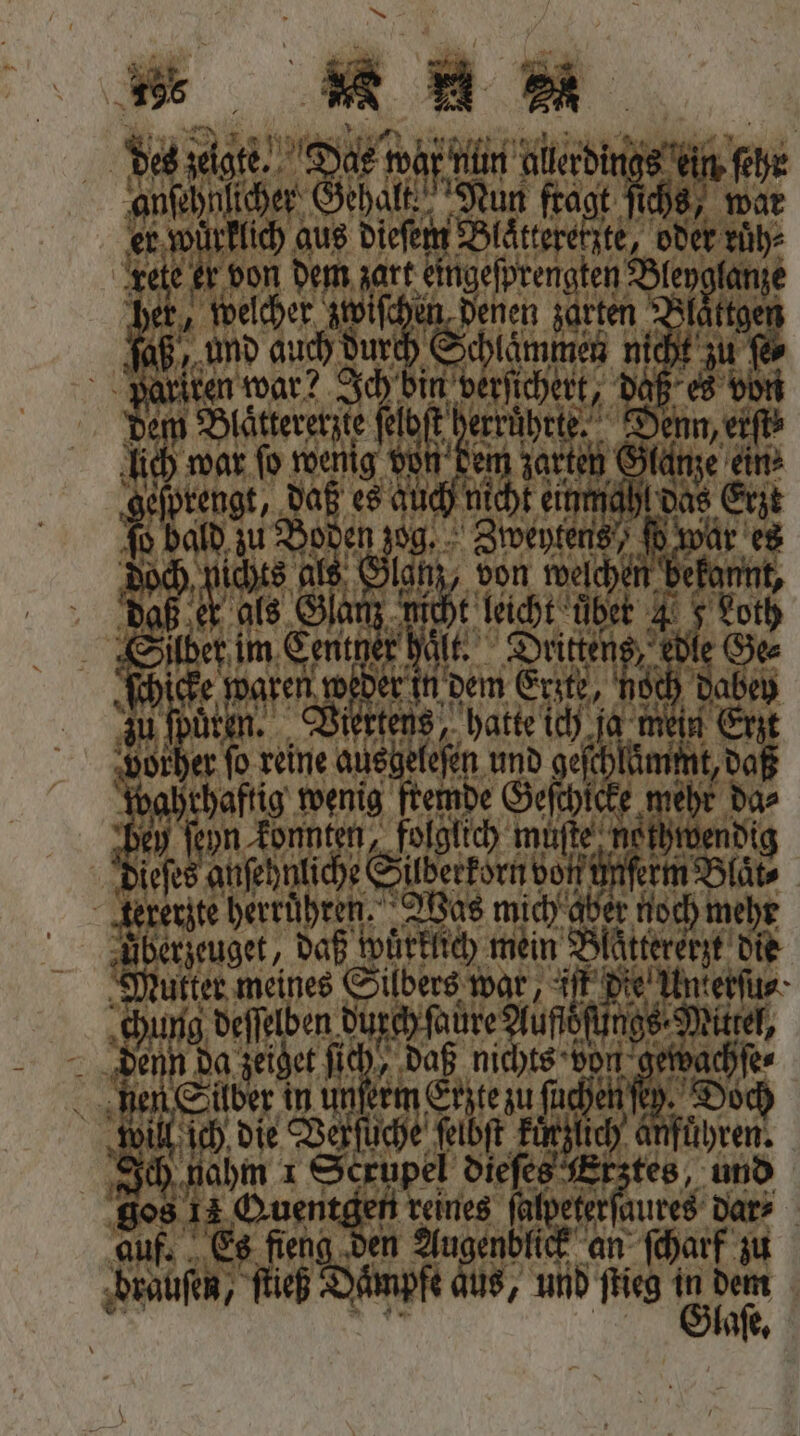 196
des zeigte. Das war nun allerdings ein ſehr
anſehnlicher Gehalt. Nun fragt ſichs, war
er wuͤrklich aus dieſem Blaͤttererzte, oder ruͤh-
rete er von dem zart eingeſprengten Bleyglanze
her, welcher zwiſchen denen zarten Blaͤttgen
ſaß, und auch durch Schlaͤmmen nicht zu ſe-
pariren war? Ich bin verſichert, daß es von
dem Blaͤttererzte ſelbſt herruͤhrte. Denn, erſt-
lich war ſo wenig von dem zarten Glanze ein-
geſprengt, daß es auch nicht einmahl das Erzt
ſo bald zu Boden zog. Zweytens, ſo war es
doch nichts als Glanz, von welchen bekannt,
daß er als Glanz nicht leicht uͤber 4 5 Loth
Silber im Centner haͤlt. Drittens, edle Ge-
ſchicke waren weder in dem Erzte, noch dabey
zu ſpuͤren. Viertens, hatte ich ja mein Erzt
vorher ſo reine ausgeleſen und geſchlaͤmmt, daß
wahrhaftig wenig fremde Geſchicke mehr da-
bey ſeyn konnten, folglich muſte nothwendig
dieſes anſehnliche Silberkorn von unſerm Blaͤt-
tererzte herruͤhren. Was mich aber noch mehr
uͤberzeuget, daß wuͤrklich mein Blaͤttererzt die
Mutter meines Silbers war, iſt die Unterſu-
chung deſſelben durch ſaure Aufloͤſungs-Mittel,
denn da zeiget ſich, daß nichts von gewachſe-
nen Silber in unſerm Erzte zu ſuchen ſey. Doch
will ich die Verſuche ſelbſt kuͤrzlich anfuͤhren.
Ich nahm 1 Scrupel dieſes Erztes, und
gos Quentgen reines ſalpeterſaures dar-
auf. Es fieng den Augenblick an ſcharf zu
brauſen, ſtieß Daͤmpfe aus, und ſtieg in dem
Glaſe,